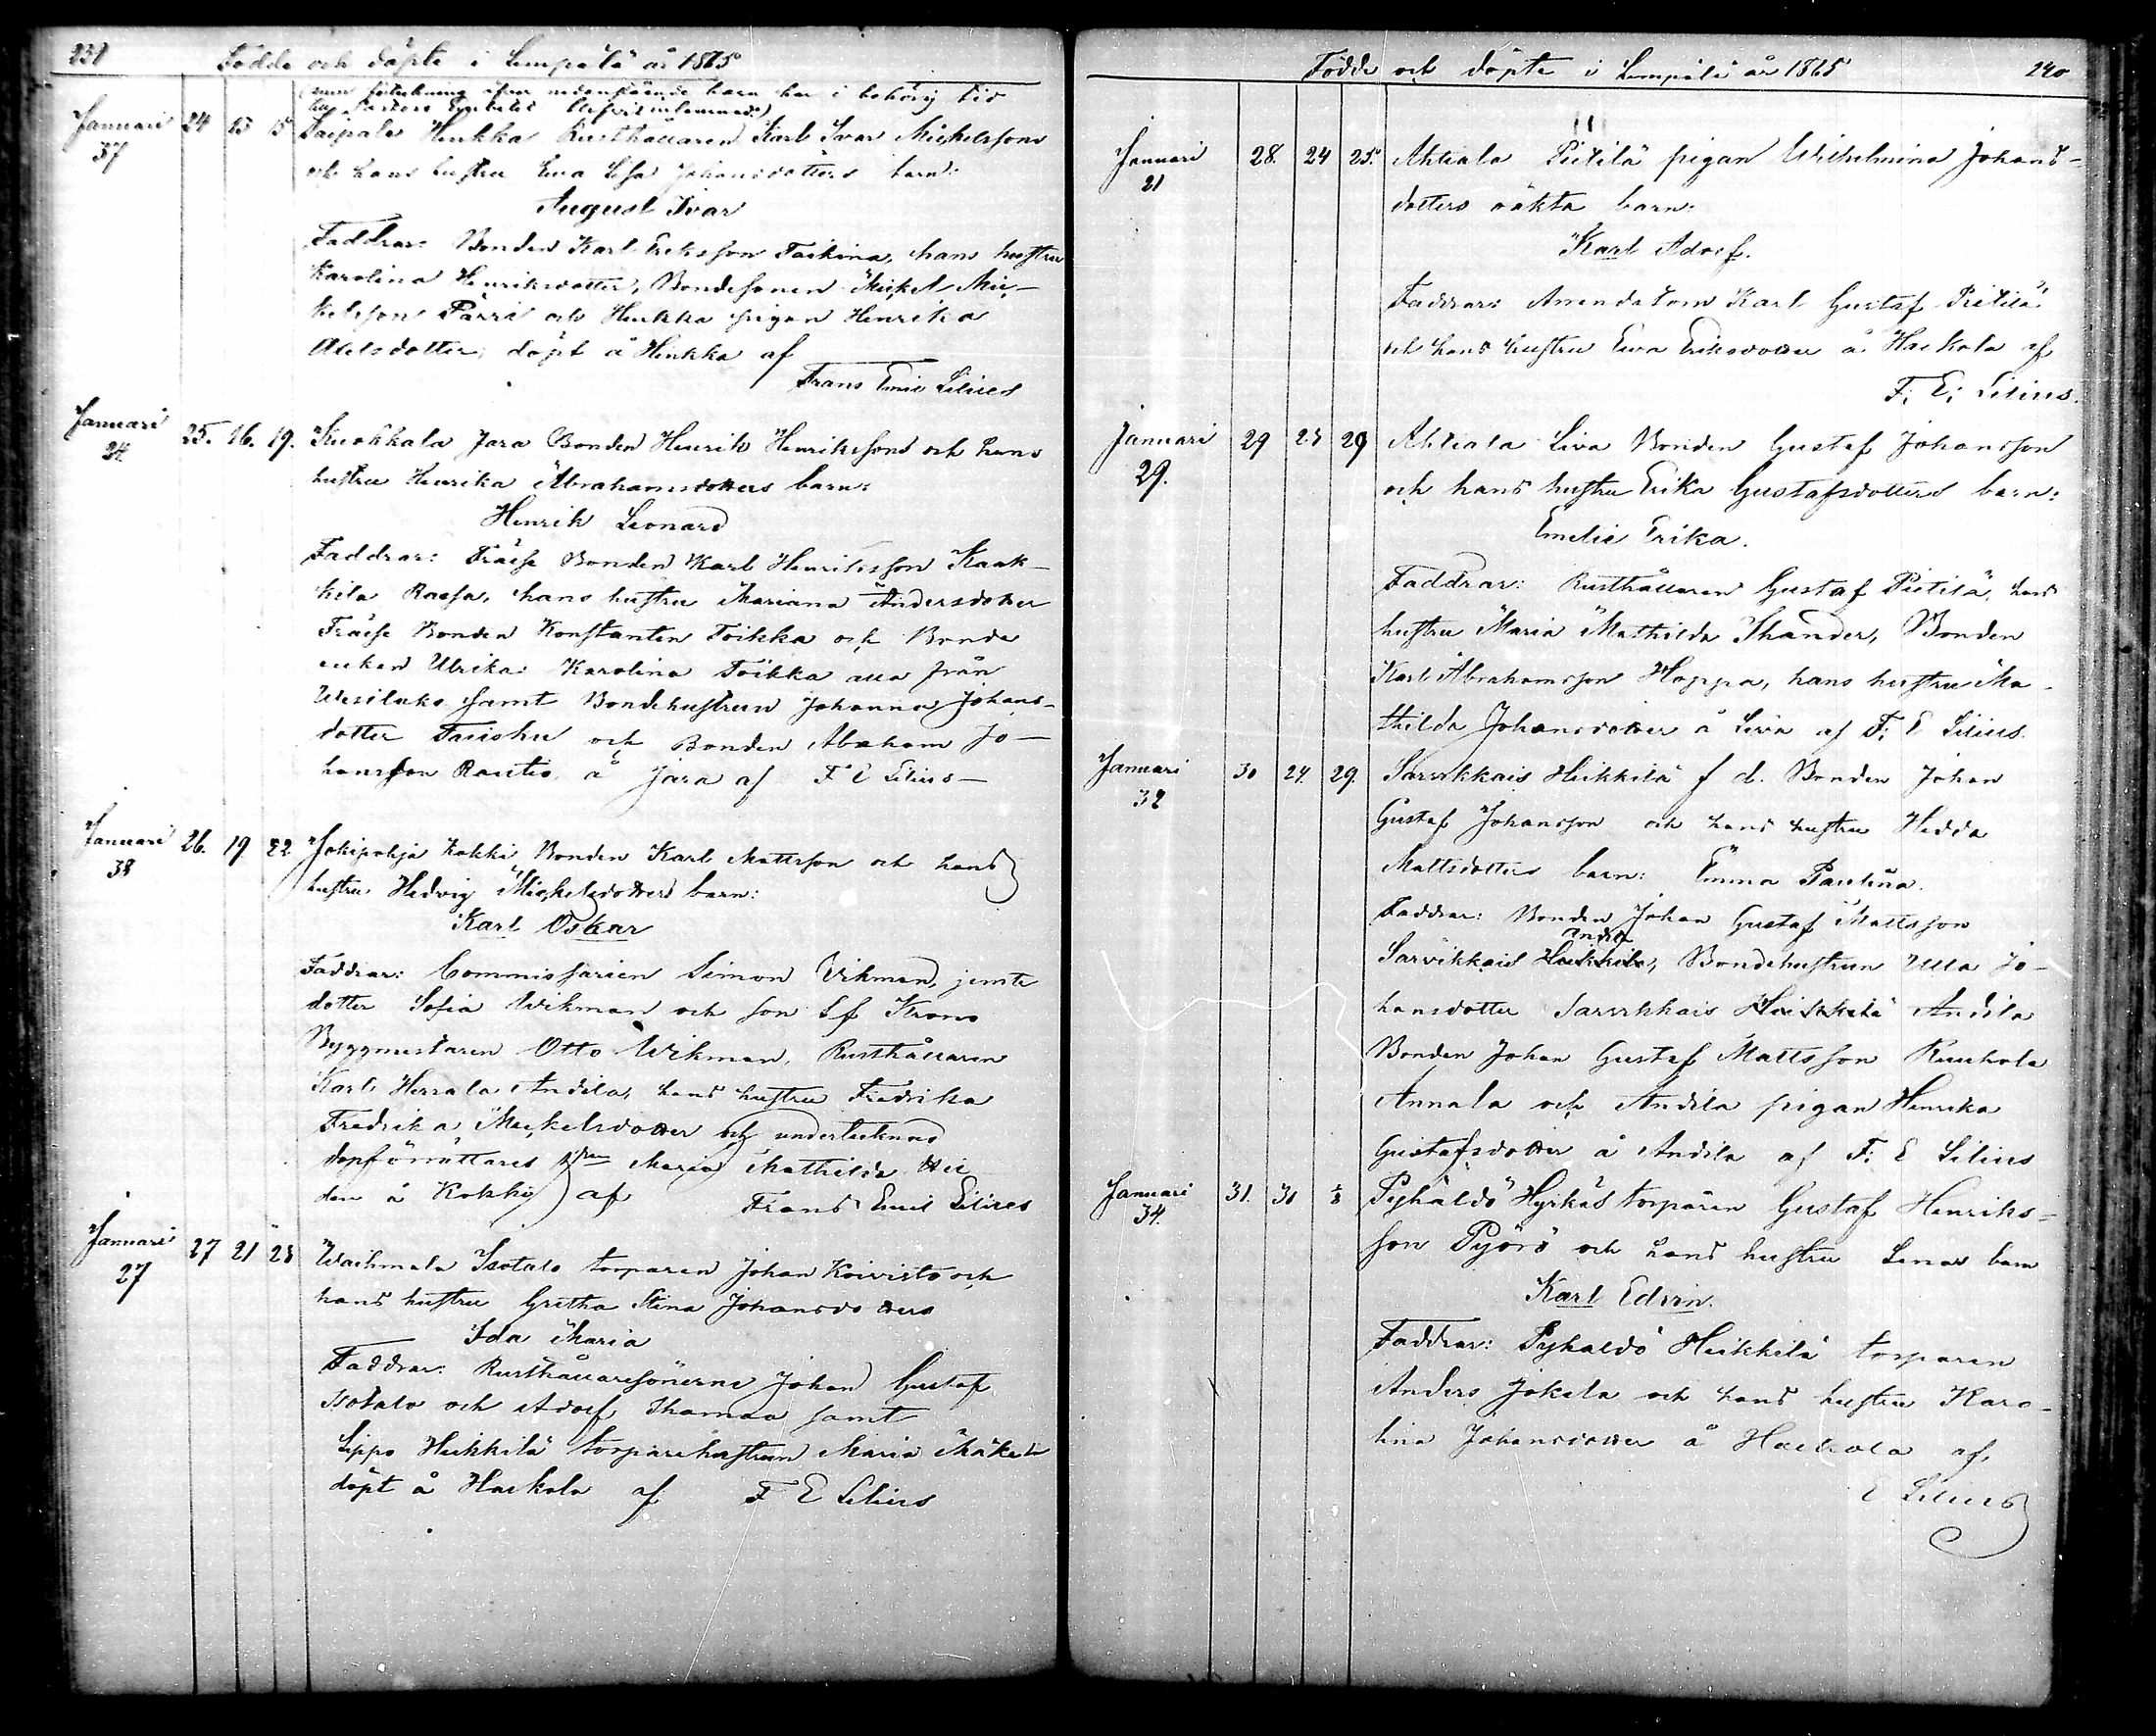 239
Födde och döpte i Lempälä år 1865
nedanstående barn har i behörig tid
Januari 24 13 15 Saipala Henkka Rusthållaren Karl Ivar Michelssons
37
och hans hustru Eva Lisa Johansdotters barn:
August Ivar
Faddrar: Bonden Karl Eriksson Taikina, hans hustru
Karolina Henriksdotter, Bondesonen Mickel Mic-
kelsson Pärri och Henkka pigan Henrika
Abelsdotter, döpt å Henkka af
Frans Emil Lilius
Januari 25. 16. 19. Kuokkala Jara Bonden Henrik Henrikssons och hans
24.
hustru Henrika Abrahamsdotters barn:
Henrik Leonard
Faddrar: Fräise Bonden Karl Henriksson Kaak-
kila Raesa, hans hustru Mariana Andersdotter
Fräise Bonden Konstantin Toikka och Bonde
enkan Ulrika Karolina Toikka alla från
Wesilaks samt Bondehustrun Johanna Johans-
dotter och Bonden Abraham Jo-
hansson Rautio å Jara af F E Lilius
Januari 26. 19 22 Jokipohja Kokki Bonden Karl Mattsson och hans
38
hustru Hedvig Mickelsdotters barn:
Karl Oskar
Faddrar: Commissarien Simon Wikman, jemte
dotter Sofia Wikman och son Krono
Byggmestaren Otto Wikman, Rusthållaren
Karl Herrala Andila, hans hustru Fredrika
Fredrika Mickelsdotter och undertecknad
dopförrättares Maria Mathilda
å Kokki af Frans Emil Lilius
Januari 27 21 23 Waihmala Isotalo torparen Johan Koivisto och
27
hans hustru Gretha Stina Johansdotters
Ida Maria
Faddrar: Rusthållaresönerne Johan Gustaf
Isotalo och Adolf Thomaa samt
Lippo Heikkilä torparehustrun Maria Mäkelä
döpt å Haikola af F E Lilius
Födde och döpte i Lempälä år 1865
240
Januari 28. 24 25. Ahtiala Pietilä pigan Wilhelmina Johans-
21
dotters oäkta barn:
Karl Adolf.
Faddrar: Arrendatorn Karl Gustaf Pietilä
och hans hustru Eva Eriksdotter å Haikola af
F: E: Lilius.
Januari 29 23 29 Ahtiala Liva Bonden Gustaf Johansson
29.
och hans hustru Erika Gustafsdotters barn:
Emelie Erika.
Faddrar: Rusthållaren Gustaf Pietilä, hans
hustru Maria Mathilda Thander, Bonden
Karl Abrahamsson Hoppa, hans hustru Ma-
thilda Johansdotter å Liva af F: E Lilius.
Januari 30 24. 29. Sarvikkais Heikkilä f d. Bonden Johan
32
Gustaf Johansson och hans hustru Hedda
Mattsdotters barn: Emma Paulina.
Faddrar: Bonden Johan Gustaf Mattsson
Andila
Sarvikkais Heikkila, Bondehustrun Ulla Jo-
hansdotter Sarvikkais Heikkilä Andila
Bonden Johan Gustaf Mattsson Kuuhola
Annala och Andila pigan Henrika
Gustafsdotter å Andila af F: E Lilius
Januari 31. 31 1/2 Pyhäldö Hyrkäs torparen Gustaf Henriks-
34.
son Pyörö och hans hustru Lenas barn
Karl Edvin.
Faddrar: Pyhaldö Heikkilä torparen
Anders Jokela och hans hustru Karo-
lina Johansdotter å Haikola af,
E Lilius